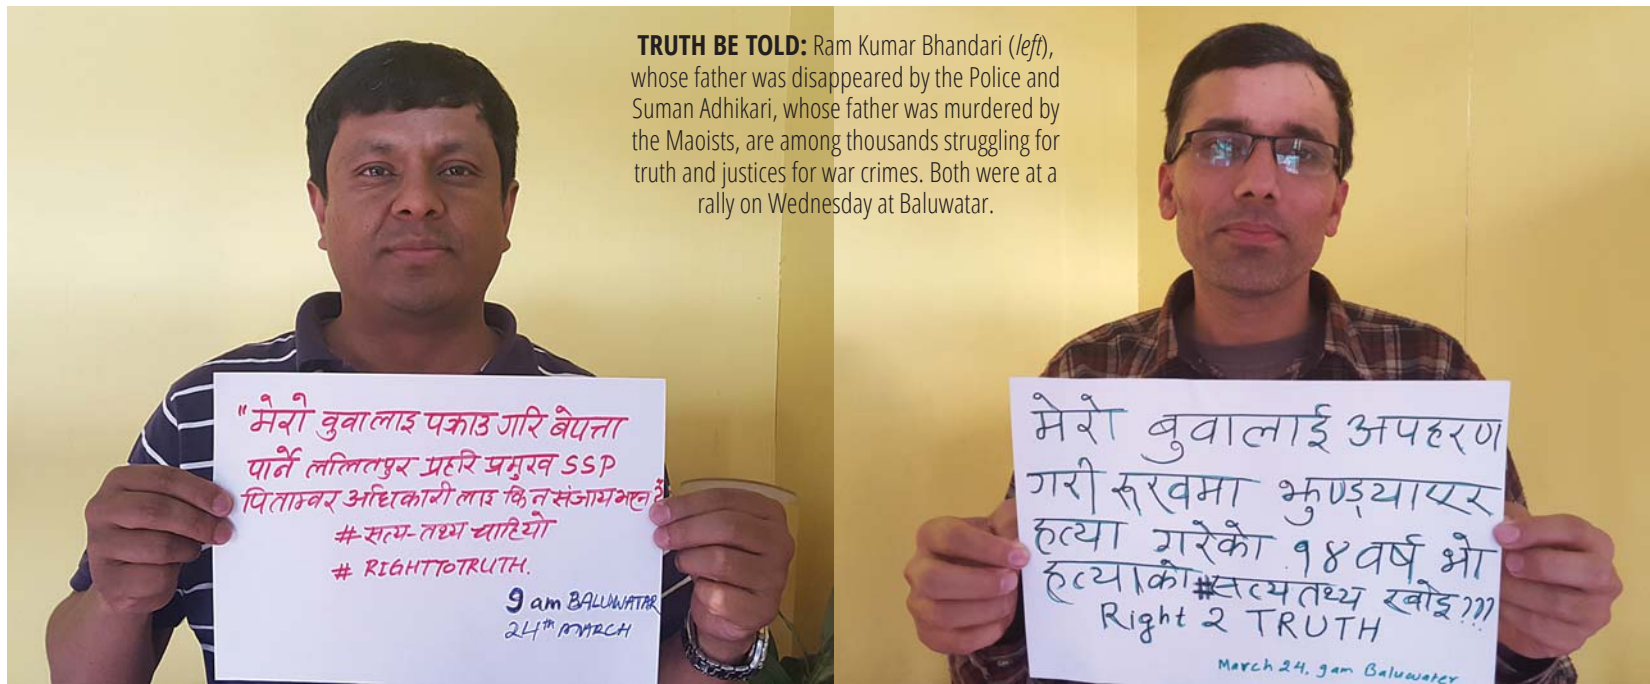 TRUTH BE TOLD: Ram Kumar Bhandari (left),
whose father was disappeared by the Police and
Suman Adhikari, whose father was murdered by
the Maoists, are among thousands struggling for
truth and justices for war crimes. Both were at a
rally on Wednesday at Baluwatar.
"मेरो वुवा लाइ पक्राउ गरि बेपत्ता
पार्ने ललितपुर प्रहरि प्रमुख SSP
पिताम्वर अधिकारी लाइ किन संजाय भएन
#सत्य-तथ्य चाहियो
# RIGHTTOTRUTH.
9 am BALUWATAR
24th MARCH
मेरो बुवालाई अपहरण
गरी रूखमा झुण्ड्याएर
हत्या गरेको १४ वर्ष भो
हत्याको #सत्य तथ्य खोइ???
Right 2 TRUTH
March 24, 9am Baluwater